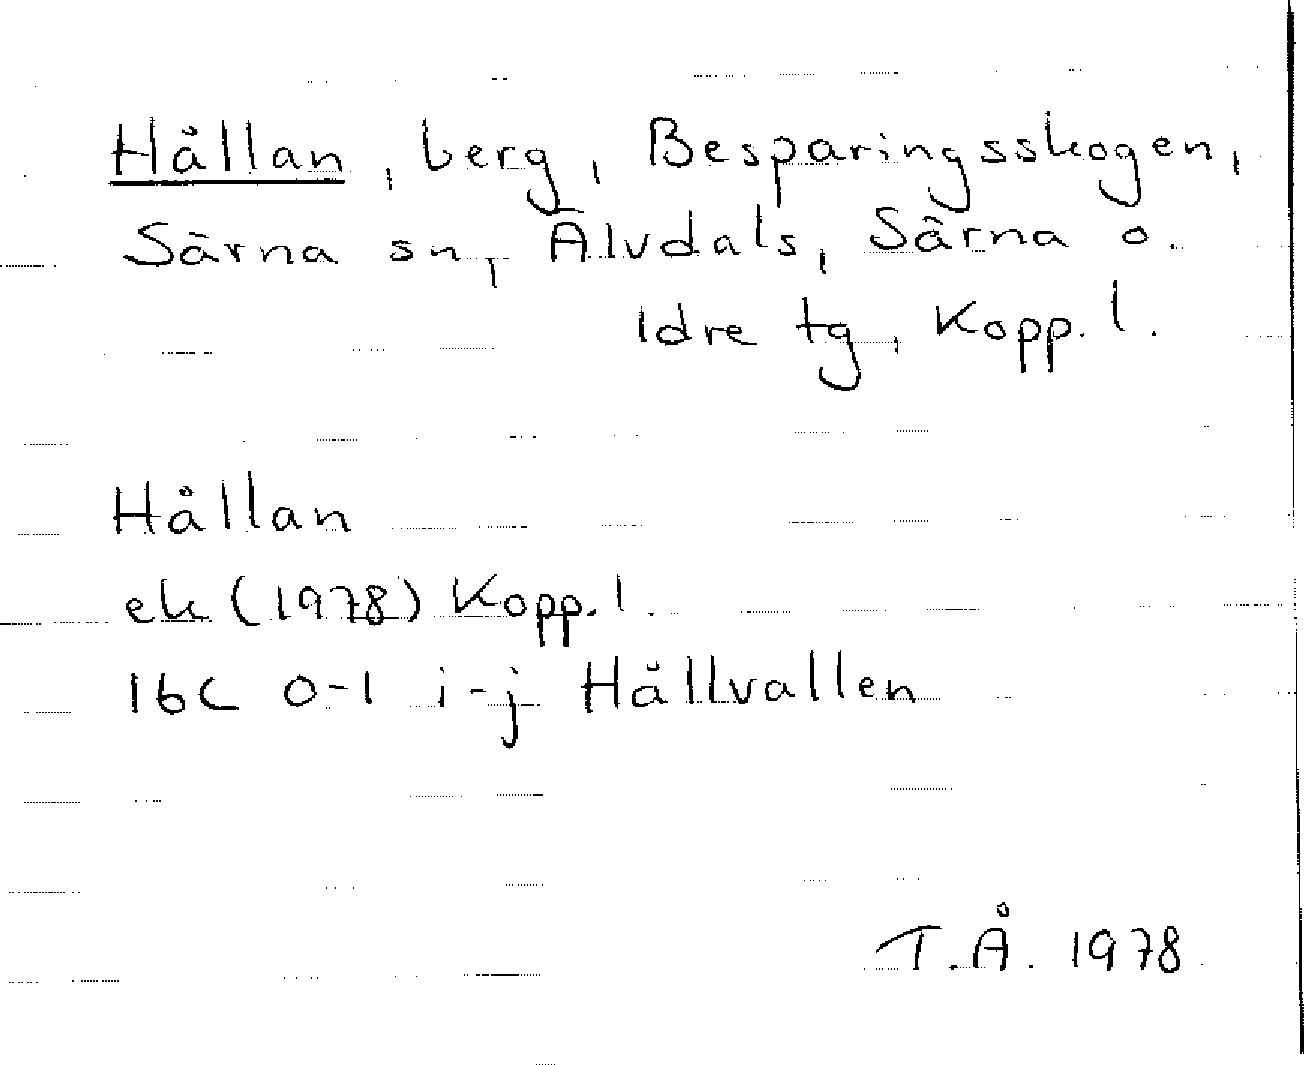 Hållan, berg, Besparingsskogen,
Särna sn, Älvdals, Särna o.
Idre tg, Kopp. l.
Hållan
ek (1978) Kopp. l.
16C 0-1 i-j Hållvallen
T.Å. 1978